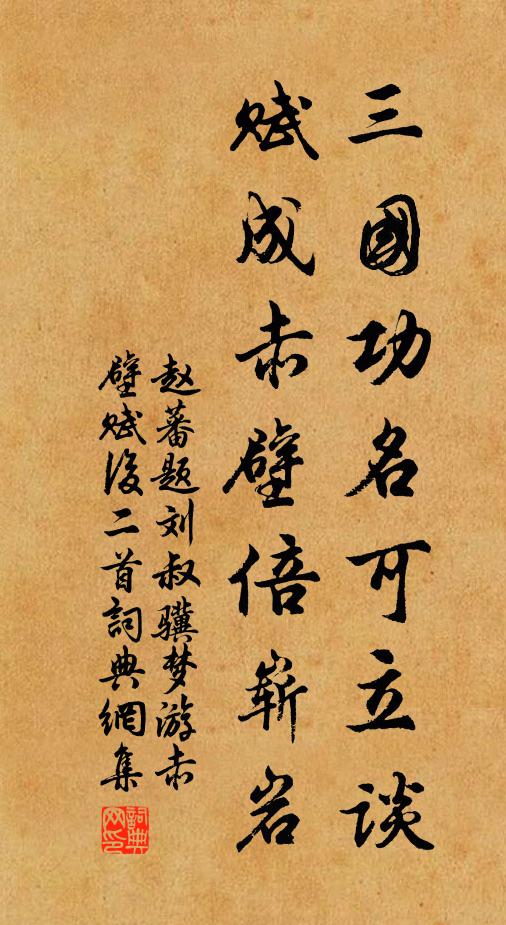 三國功名可立谈
赋成赤壁倍嶄岩
赵蕃题刘叔骥梦游赤
壁赋後二首詞典網集
詞典
网印